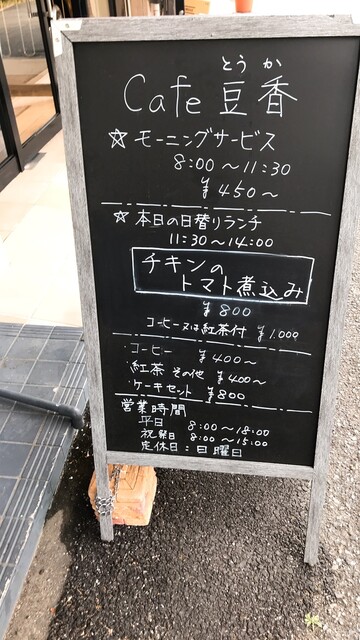 とうか
Cafe 豆香
☆ モーニングサービス
8:00～11:30
¥450～
☆ 本日の日替りランチ
11:30～14:00
チキンの
トマト煮込み
¥800
コーヒー又は紅茶付 ¥1,000
・コーヒー ¥400～
・紅茶 その他 ¥400～
・ケーキセット ¥800
営業時間
平日 8:00～18:00
祝祭日 8:00～15:00
定休日：日曜日